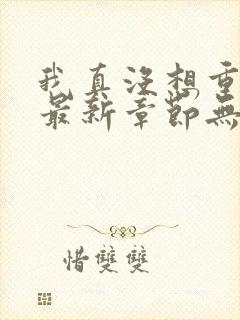 我真没想重
最新章節無
惜雙雙